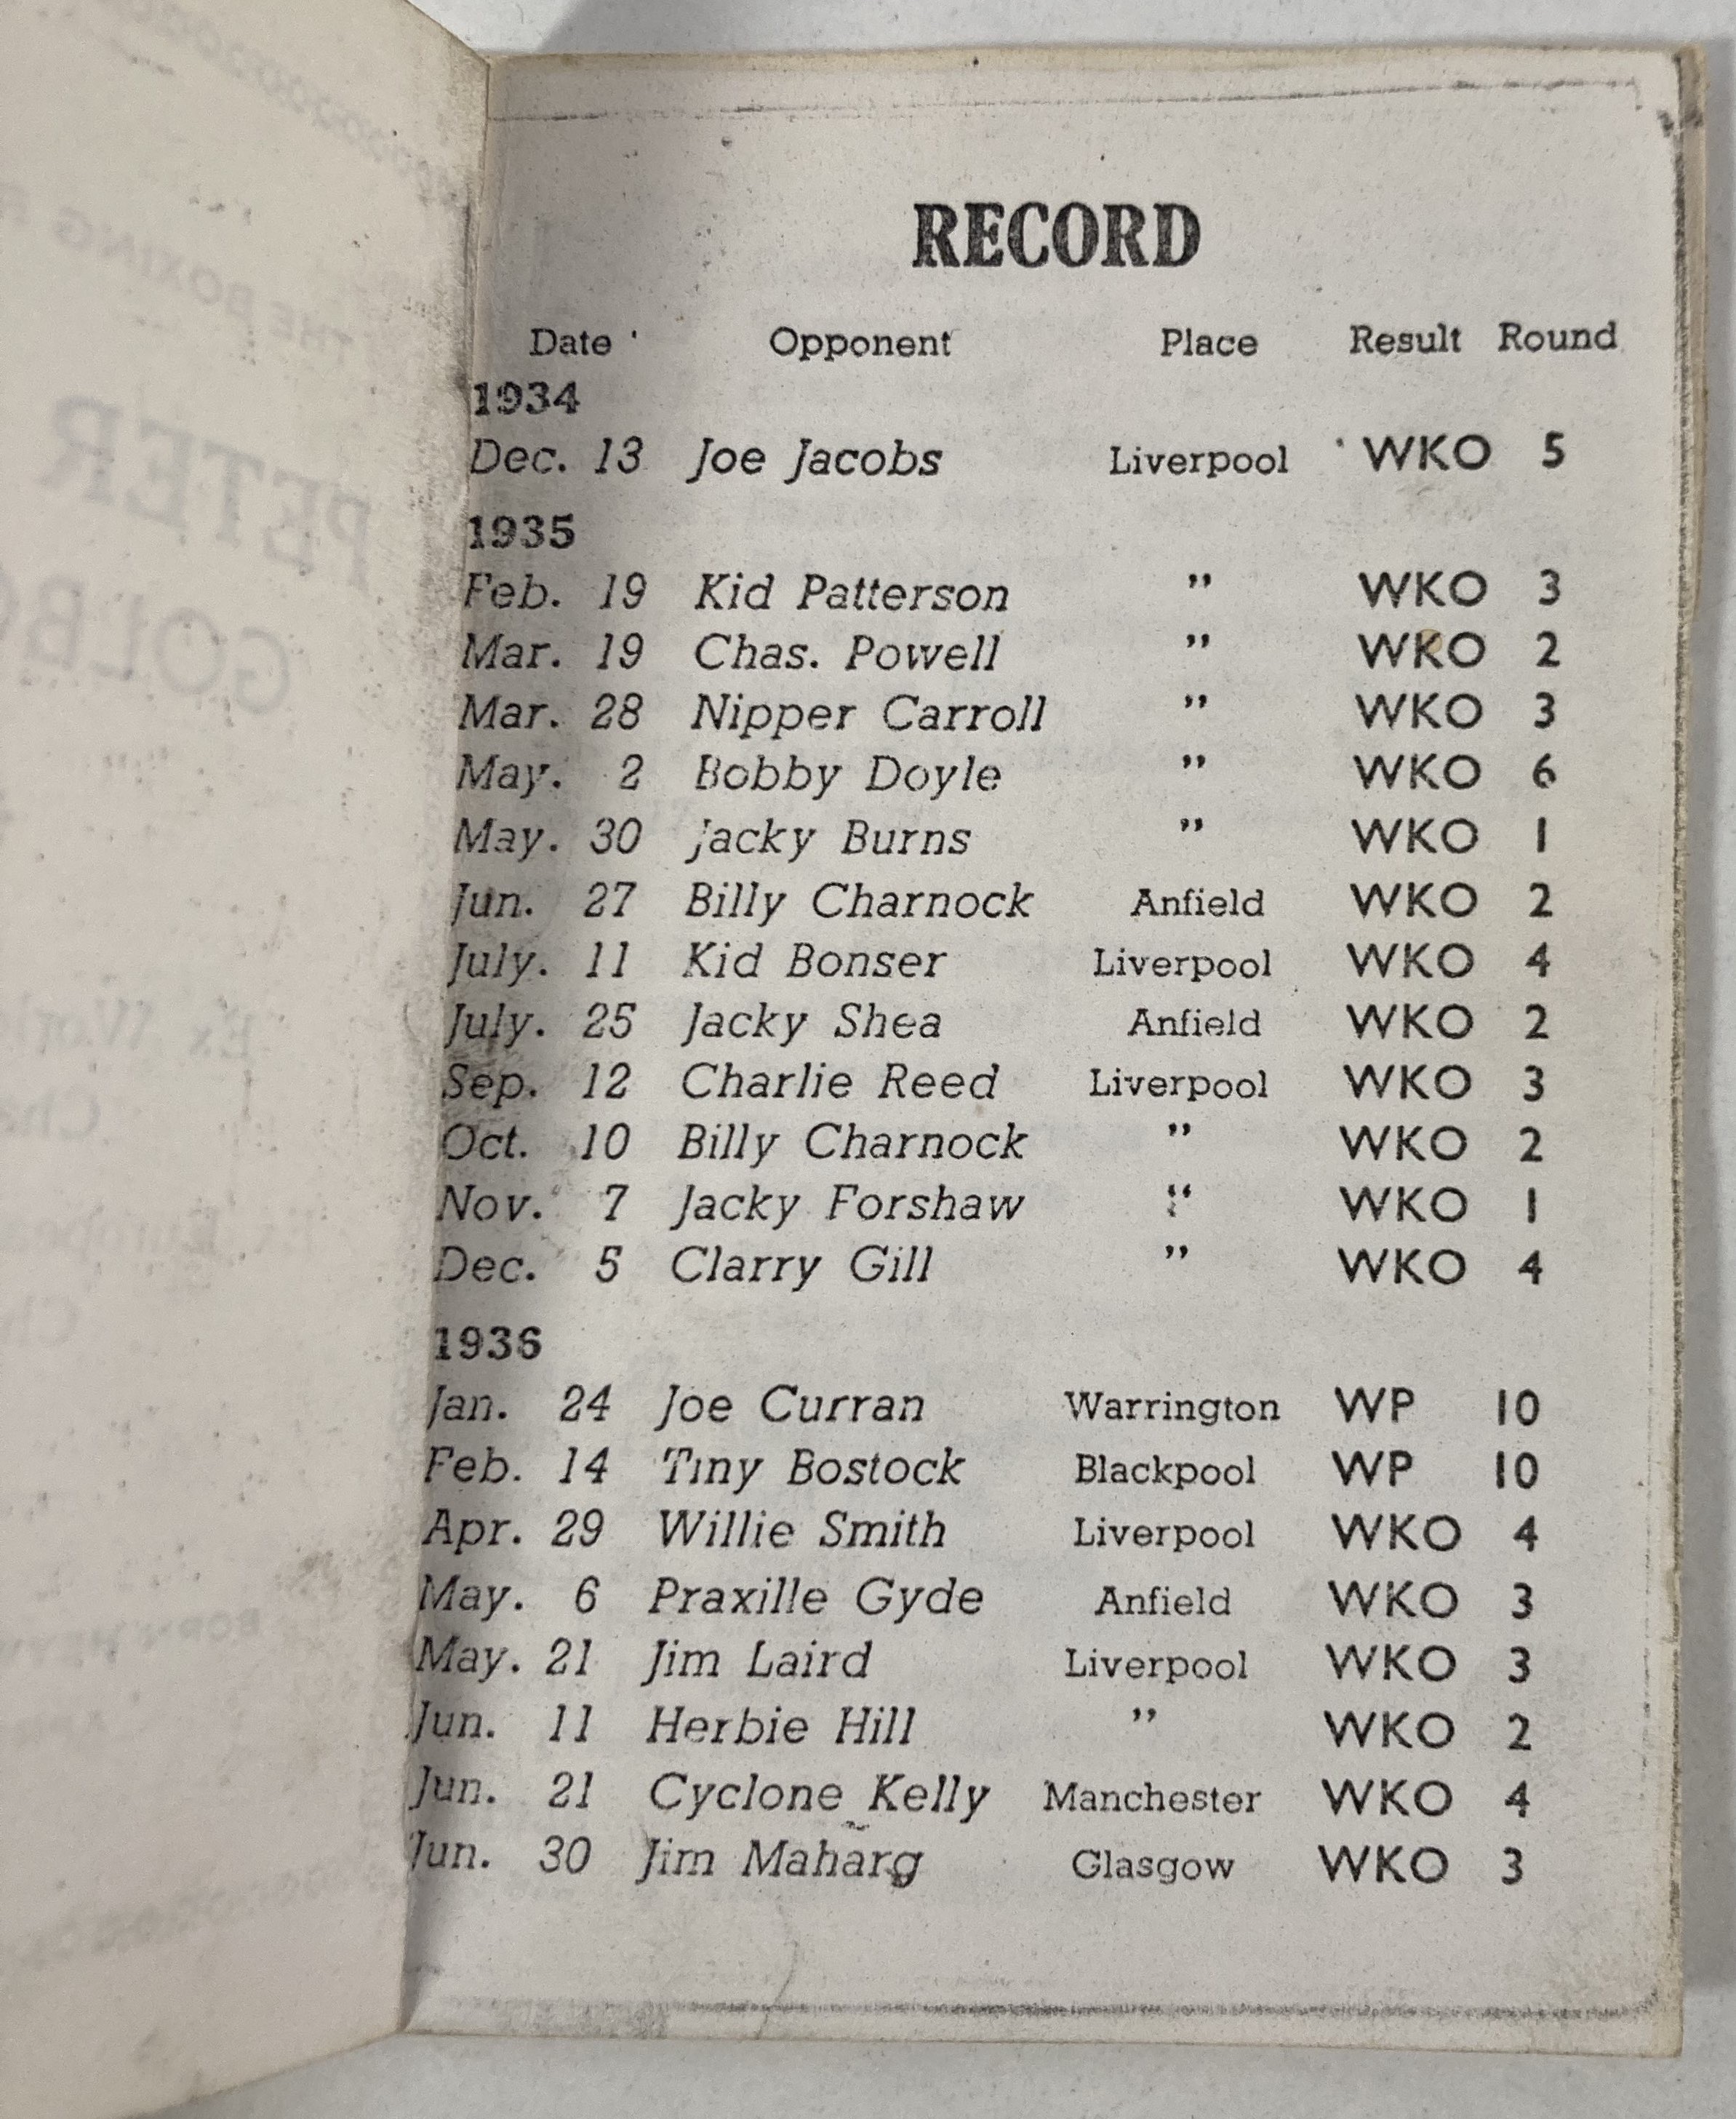 RECORD
Date Opponent Place Result Round
1934
Dec. 13 Joe Jacobs Liverpool WKO 5
1935
Feb. 19 Kid Patterson " WKO 3
Mar. 19 Chas. Powell " WKO 2
Mar. 28 Nipper Carroll " WKO 3
May. 2 Bobby Doyle " WKO 6
May. 30 Jacky Burns " WKO 1
Jun. 27 Billy Charnock Anfield WKO 2
July. 11 Kid Bonser Liverpool WKO 4
July. 25 Jacky Shea Anfield WKO 2
Sep. 12 Charlie Reed Liverpool WKO 3
Oct. 10 Billy Charnock " WKO 2
Nov. 7 Jacky Forshaw " WKO 1
Dec. 5 Clarry Gill " WKO 4
1936
Jan. 24 Joe Curran Warrington WP 10
Feb. 14 Tiny Bostock Blackpool WP 10
Apr. 29 Willie Smith Liverpool WKO 4
May. 6 Praxille Gyde Anfield WKO 3
May. 21 Jim Laird Liverpool WKO 3
Jun. 11 Herbie Hill " WKO 2
Jun. 21 Cyclone Kelly Manchester WKO 4
Jun. 30 Jim Maharg Glasgow WKO 3
THE BOXING
PETER